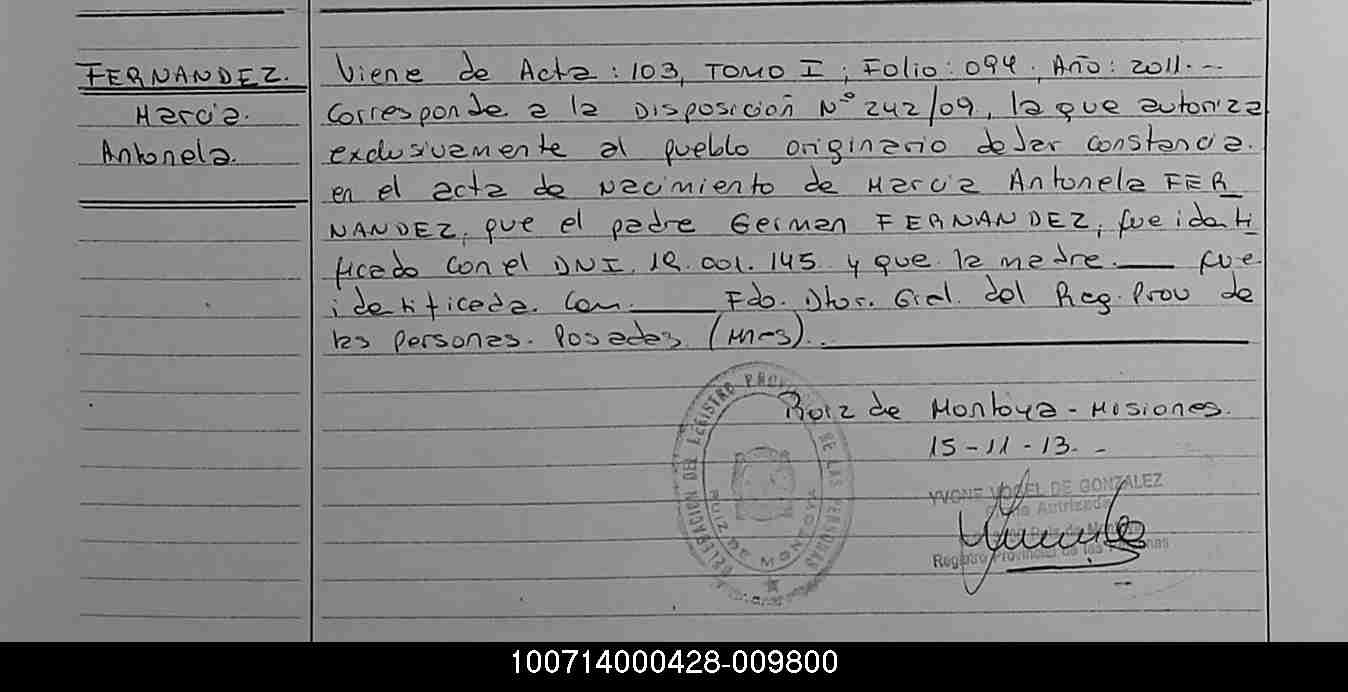 FERNANDEZ.
Marcia.
Antonela.
Viene de Acta: 103, TOMO I; Folio: 094. Año: 2011.--
Corresponde a la Disposición Nº 242/09, la que autoriza
exclusivamente al pueblo originario dejar constancia.
en el acta de Nacimiento de Marcia Antonela FER
NANDEZ, que el padre German FERNANDEZ, fue identi
ficado con el DNI. 19.001.145 y que la madre.____ fue
identificada. Con.____ Fdo. Dtor. Gral. del Reg. Prov de
las personas. Posadas (Mnes).
Ruiz de Montoya - Misiones.
15-11-13.-
DELEGACION DEL REGISTRO PROVINCIAL DE LAS PERSONAS
RUIZ DE MONTOYA
YVONE VOGEL DE GONZALEZ
Autrizada
Registro Provincial de las Personas
100714000428-009800